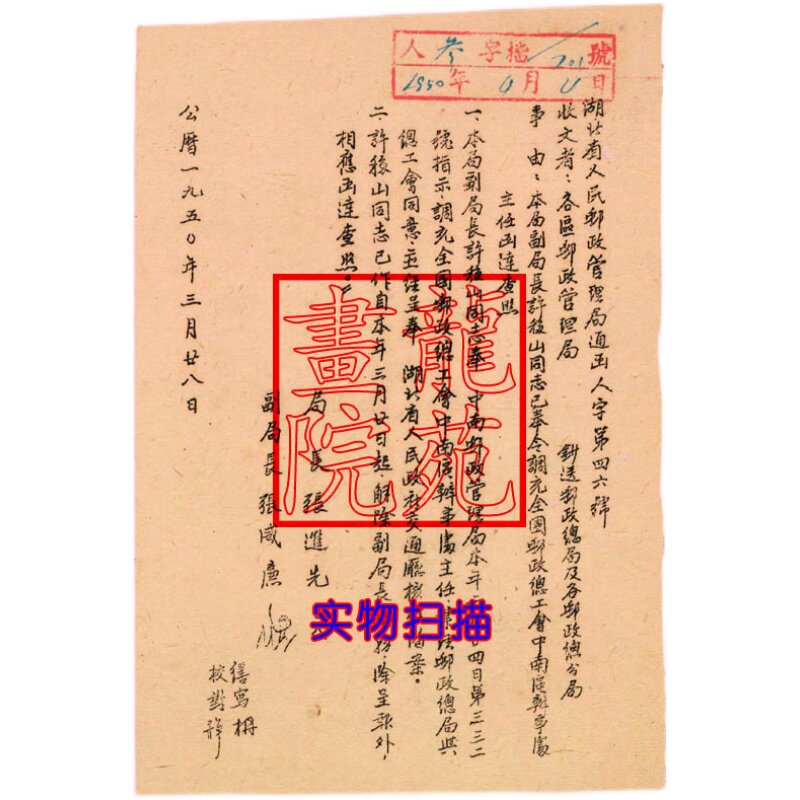 人 參 字檔 201 號
1950年 4月 4日
湖北省人民郵政管理局通函人字第四六號
收文者：各區郵政管理局 郵政總局及各郵政總分局
事由：本局副局長許稼山同志已奉令調充全國郵政總工會中南區辦事處
主任函達查照
一、本局副局長許稼山同志奉 中南郵政管理局本年 四日第三三二
號指示、調充全國郵政總工會中南區辦事處主任 郵政總局與
總工會同意、主任呈奉 湖北省人民政府交通廳核 備案。
二、許稼山同志已作自本年三月廿日起、解除副局長 務、除呈報外，
相應函達查照。
局長張進先
副局長張威廉
公曆一九五〇年三月廿八日
繕寫
校對
龍苑
畫院
实物扫描